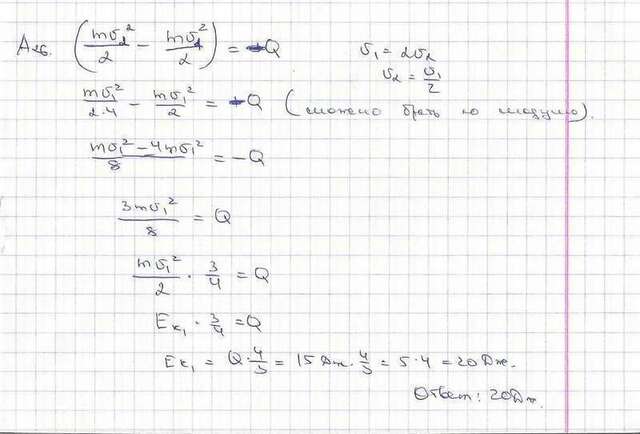 A26. (mv₂²/2 − mv₁²/2) = −Q v₁ = 2v₂
v₂ = v₁/2
mv₁²/2·4 − mv₁²/2 = −Q (можно брать по модулю).
(mv₁² − 4mv₁²)/8 = −Q
3mv₁²/8 = Q
mv₁²/2 · 3/4 = Q
Eк₁ · 3/4 = Q
Eк₁ = Q·4/3 = 15Дж·4/3 = 5·4 = 20Дж.
Ответ: 20Дж.